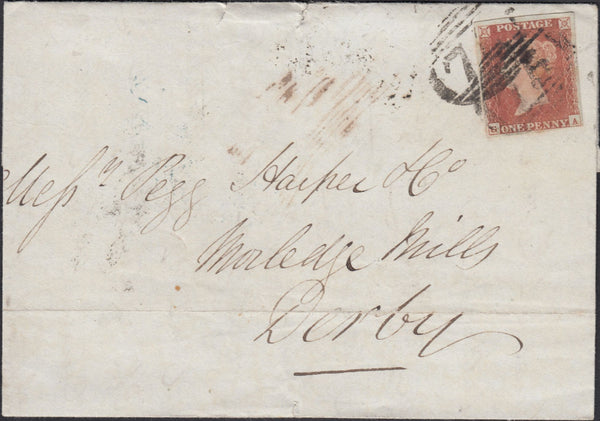 POSTAGE
B A
ONE PENNY
Messrs Pegg Harper & Co
Morledge Mills
Derby